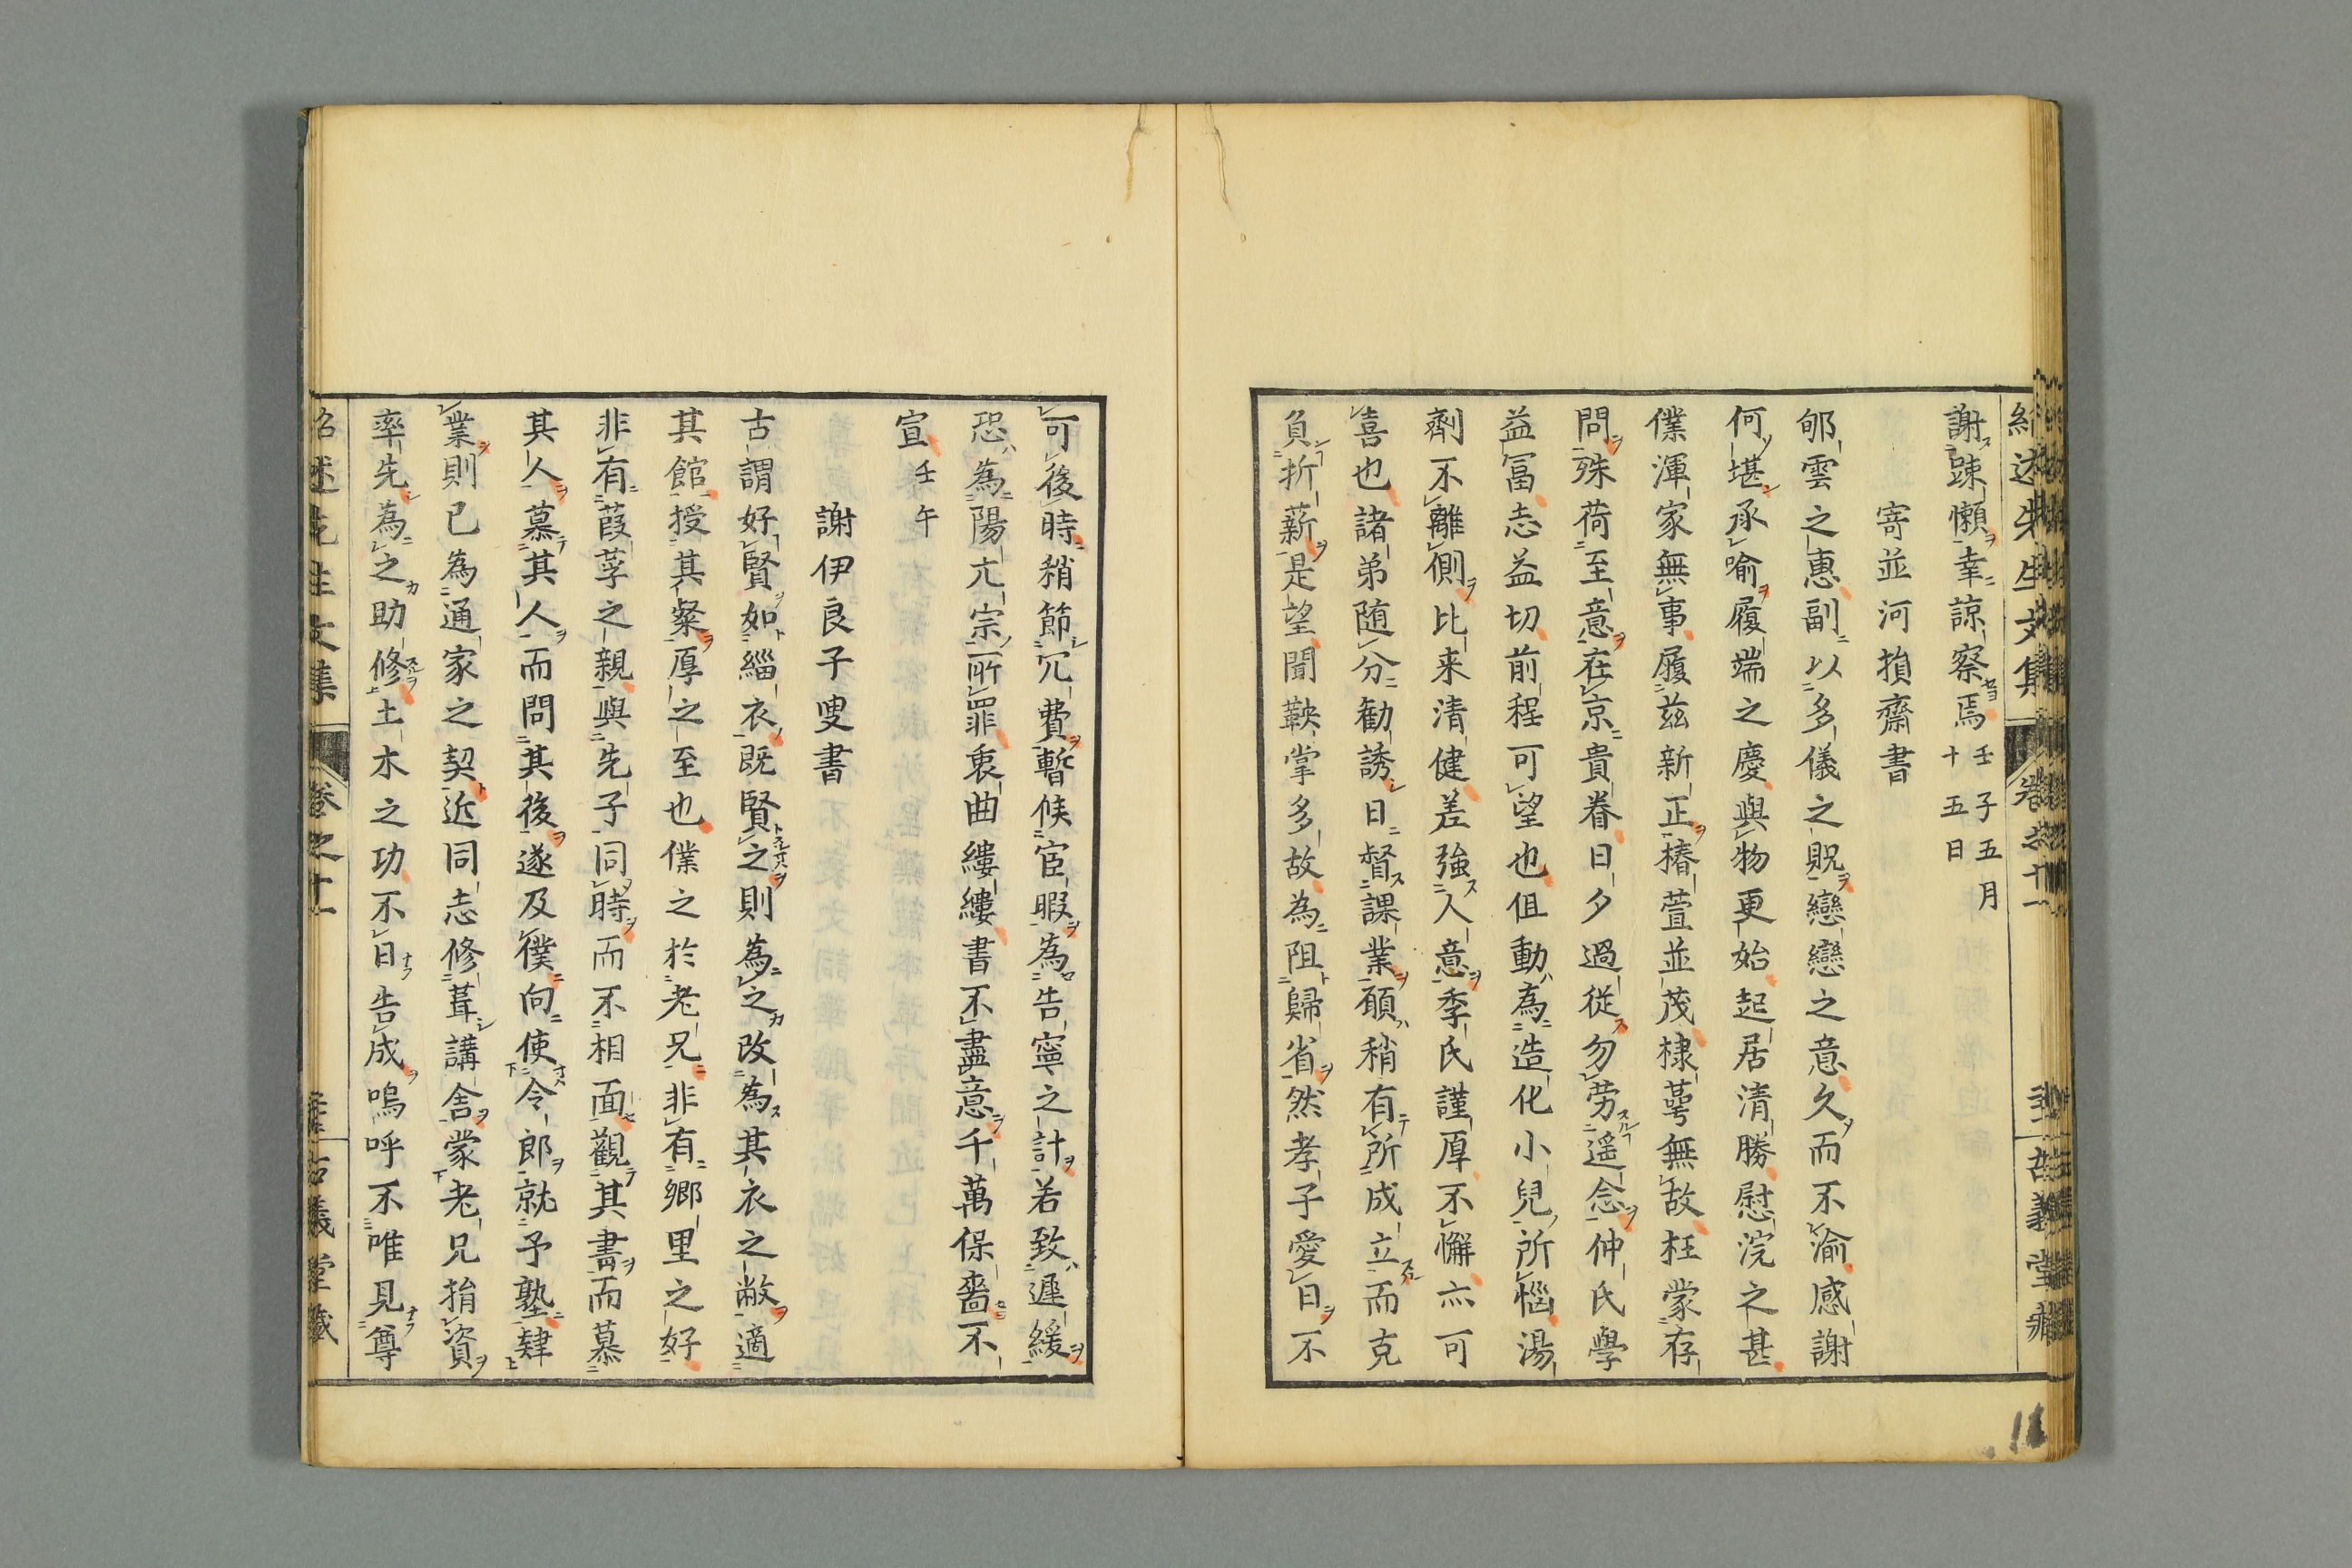 紹述先生文集 卷之十一 古義堂藏
謝踈懶幸諒察焉 壬子五月十五日
寄並河損齋書
郇雲之惠副以多儀之貺戀戀之意久而不渝感謝
何堪承喻履端之慶與物更始起居清勝慰浣之甚
僕渾家無事履茲新正椿萱並茂棣萼無故枉蒙存
問殊荷至意在京貴眷日夕過從勿勞遥念仲氏學
益冨志益切前程可望也但動為造化小兒所惱湯
劑不離側比来清健差強人意季氏謹厚不懈亦可
喜也諸弟随分勸誘日督課業願稍有所成立而克
負折薪是望聞鞅掌多故為阻歸省然孝子愛日不
可後時稍節冗費暫候宦暇為告寧之計若致遲緩
恐為陽亢宗所罪衷曲縷縷書不盡意千萬保嗇不
宣 壬午
謝伊良子叟書
古謂好賢如緇衣既賢之則為之改為其衣之敝適
其館授其粲厚之至也僕之於老兄非有鄉里之好
非有葭莩之親與先子同時而不相面觀其書而慕
其人慕其人而問其後遂及僕向使令郎就予塾肄
業則已為通家之契近同志修葺講舎蒙老兄捐資
率先為之助修土木之功不日告成嗚呼不唯見尊
紹述先生文集 卷之十一 古義堂藏